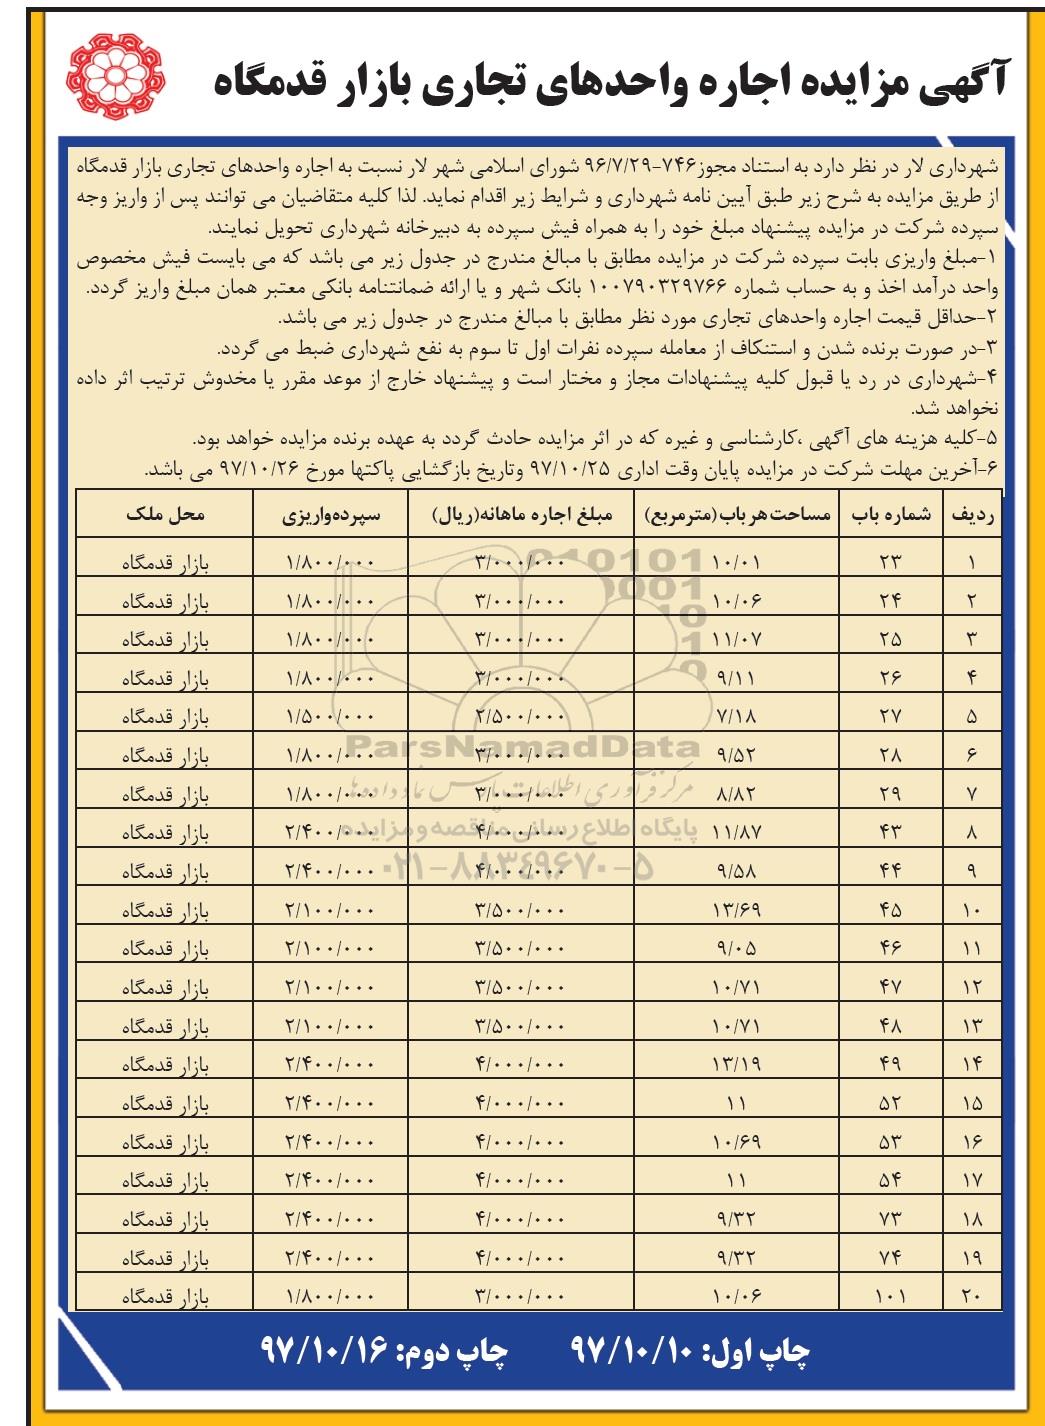 آگهی مزایده اجاره واحدهای تجاری بازار قدمگاه
شهرداری لار در نظر دارد به استناد مجوز۷۴۶-۹۶/۷/۲۹ شورای اسلامی شهر لار نسبت به اجاره واحدهای تجاری بازار قدمگاه
از طریق مزایده به شرح زیر طبق آیین نامه شهرداری و شرایط زیر اقدام نماید. لذا کلیه متقاضیان می توانند پس از واریز وجه
سپرده شرکت در مزایده پیشنهاد مبلغ خود را به همراه فیش سپرده به دبیرخانه شهرداری تحویل نمایند.
۱-مبلغ واریزی بابت سپرده شرکت در مزایده مطابق با مبالغ مندرج در جدول زیر می باشد که می بایست فیش مخصوص
واحد درآمد اخذ و به حساب شماره ۱۰۰۷۹۰۳۲۹۷۶۶ بانک شهر و یا ارائه ضمانتنامه بانکی معتبر همان مبلغ واریز گردد.
۲-حداقل قیمت اجاره واحدهای تجاری مورد نظر مطابق با مبالغ مندرج در جدول زیر می باشد.
۳-در صورت برنده شدن و استنکاف از معامله سپرده نفرات اول تا سوم به نفع شهرداری ضبط می گردد.
۴-شهرداری در رد یا قبول کلیه پیشنهادات مجاز و مختار است و پیشنهاد خارج از موعد مقرر یا مخدوش ترتیب اثر داده
نخواهد شد.
۵-کلیه هزینه های آگهی ،کارشناسی و غیره که در اثر مزایده حادث گردد به عهده برنده مزایده خواهد بود.
۶-آخرین مهلت شرکت در مزایده پایان وقت اداری ۹۷/۱۰/۲۵ وتاریخ بازگشایی پاکتها مورخ ۹۷/۱۰/۲۶ می باشد.
ردیف شماره باب مساحت هر باب(مترمربع) مبلغ اجاره ماهانه(ریال) سپرده واریزی محل ملک
۱ ۲۳ ۱۰/۰۱ ۳/۰۰۰/۰۰۰ ۱/۸۰۰/۰۰۰ بازار قدمگاه
۲ ۲۴ ۱۰/۰۶ ۳/۰۰۰/۰۰۰ ۱/۸۰۰/۰۰۰ بازار قدمگاه
۳ ۲۵ ۱۱/۰۷ ۳/۰۰۰/۰۰۰ ۱/۸۰۰/۰۰۰ بازار قدمگاه
۴ ۲۶ ۹/۱۱ ۳/۰۰۰/۰۰۰ ۱/۸۰۰/۰۰۰ بازار قدمگاه
۵ ۲۷ ۷/۱۸ ۲/۵۰۰/۰۰۰ ۱/۵۰۰/۰۰۰ بازار قدمگاه
۶ ۲۸ ۹/۵۲ ۳/۰۰۰/۰۰۰ ۱/۸۰۰/۰۰۰ بازار قدمگاه
۷ ۲۹ ۸/۸۲ ۳/۰۰۰/۰۰۰ ۱/۸۰۰/۰۰۰ بازار قدمگاه
۸ ۴۳ ۱۱/۸۷ ۴/۰۰۰/۰۰۰ ۲/۴۰۰/۰۰۰ بازار قدمگاه
۹ ۴۴ ۹/۵۸ ۴/۰۰۰/۰۰۰ ۲/۴۰۰/۰۰۰ بازار قدمگاه
۱۰ ۴۵ ۱۳/۶۹ ۳/۵۰۰/۰۰۰ ۲/۱۰۰/۰۰۰ بازار قدمگاه
۱۱ ۴۶ ۹/۰۵ ۳/۵۰۰/۰۰۰ ۲/۱۰۰/۰۰۰ بازار قدمگاه
۱۲ ۴۷ ۱۰/۷۱ ۳/۵۰۰/۰۰۰ ۲/۱۰۰/۰۰۰ بازار قدمگاه
۱۳ ۴۸ ۱۰/۷۱ ۳/۵۰۰/۰۰۰ ۲/۱۰۰/۰۰۰ بازار قدمگاه
۱۴ ۴۹ ۱۳/۱۹ ۴/۰۰۰/۰۰۰ ۲/۴۰۰/۰۰۰ بازار قدمگاه
۱۵ ۵۲ ۱۱ ۴/۰۰۰/۰۰۰ ۲/۴۰۰/۰۰۰ بازار قدمگاه
۱۶ ۵۳ ۱۰/۶۹ ۴/۰۰۰/۰۰۰ ۲/۴۰۰/۰۰۰ بازار قدمگاه
۱۷ ۵۴ ۱۱ ۴/۰۰۰/۰۰۰ ۲/۴۰۰/۰۰۰ بازار قدمگاه
۱۸ ۷۳ ۹/۳۲ ۴/۰۰۰/۰۰۰ ۲/۴۰۰/۰۰۰ بازار قدمگاه
۱۹ ۷۴ ۹/۳۲ ۴/۰۰۰/۰۰۰ ۲/۴۰۰/۰۰۰ بازار قدمگاه
۲۰ ۱۰۱ ۱۰/۰۶ ۳/۰۰۰/۰۰۰ ۱/۸۰۰/۰۰۰ بازار قدمگاه
ParsNamadData
مرکز فرآوری اطلاعات پارس نماد داده ها
پایگاه اطلاع رسانی مناقصه و مزایده
۰۲۱-۸۸۳۴۹۶۷۰-۵
چاپ اول: ۹۷/۱۰/۱۰ چاپ دوم: ۹۷/۱۰/۱۶